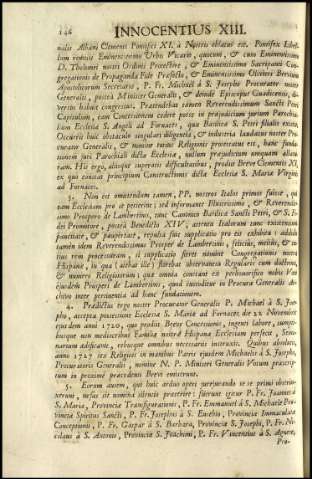 144 INNOCENTIUS XIII.
nalis Albani Clementi Pontifici XI. à Nostris oblatus est. Pontifex Libel-
lum remisit Eminentissimo Urbis Vicario, quocum, & cum Eminentissimo
D. Tholomei nostri Ordinis Protectore, & Eminentissimo Sacripanti Con-
gregationis de Propaganda Fide Præfecto, & Eminentissimo Oliverio Brevium
Apostolicorum Secretario, P. Fr. Michaël à S. Josepho Procurator noster
Generalis, posteà Minister Generalis, & deindè Episcopus Guadicensis,
vertis habuit congressus. Prætendebat tamen Reverendissimum Sancti Petri
Capitulum, eam Concessionem cedere posse in præjudicium jurium Parochia-
lium Ecclesiæ S. Angeli ad Fornaces, quæ Basilicæ S. Petri filialis exstat.
Occurrit huic obstaculo singulari diligentia, & industria laudatus noster Pro-
curator Generalis, & nomine totius Religionis protestatus est, hanc funda-
tionem juri Parochiali dictæ Ecclesiæ, nullum præjudicium unquam alla-
ram. His ergo, aliisque superatis difficultatibus, prodiit Breve Clementis XI,
ex quo cœpisse principium Constructionis dictæ Ecclesiæ S. Mariæ Virginis
ad Fornaces.
3. Non est omittendum tamen, PP. nostros Italos primos fuisse, qui
eam Ecclesiam pro se petierint; sed informante Illustrissimo, & Reverendis-
simo Prospero de Lambertinis, tunc Canonico Basilicæ Sancti Petri, & S. Fi-
dei Promotore, posteà Benedicto XIV, attentà Italorum tunc existentium
paucitate, & paupertate, repulsa fuit supplicatio pro eis exhibita: addidit
tamen idem Reverendissimus Prosper de Lambertinis, felicius, meliùs, & ci-
tiùs rem processuram, si supplicatio fieret nomine Congregationis nostræ
Hispanæ, in qua (aiebat ille) florebat observantia Regularis cum divitiis,
& numero Religiosorum; quæ omnia constant ex perhonorifico voto Viri
ejusdem Prosperi de Lambertinis, quod invisitatur in Procura Generali
chivo inter pertinentia ad hanc fundationem.
4. Prædictus ergo noster Procurator Generalis P. Michaël à S. Jo-
sepho, accepta possessione Ecclesiæ S. Mariæ ad Fornaces die 22 November
ejusdem anni 1720, quo prodiit Breve Concessionis, ingenti labore, sump-
tibusque non mediocribus Familiæ nostræ Hispanæ Ecclesiam perfecit, Semi-
narium ædificavit, rebusque omnibus necessariis instruxit. Quibus absolutis,
anno 1727 sex Religiosi in manibus Patris ejusdem Michaëlis à S. Josepho,
Procuratoris Generalis, nomine N. P. Ministri Generalis Votum præscrip-
tum in proximè præcedenti Brevi emiserunt.
5. Eorum autem, qui huic arduo operi jurejurando se se primi obstrin-
xerunt, nefas sit nomina silentio præterire: fuerunt ergo P. Fr. Joannes à
S. Maria, Provinciæ Transfigurationis, P. Fr. Emmanuel à S. Michaële Pro-
vinciæ Spiritus Sancti, P. Fr. Josephus à S. Eusebio, Provinciæ Immaculatæ
Conceptionis, P. Fr. Gaspar à S. Barbara, Provinciæ S. Josephi, P. Fr. Ni-
colaus à S. Antonio, Provinciæ S. Joachimi, P. Fr. Vincentius à S. Agnete,
Pro-